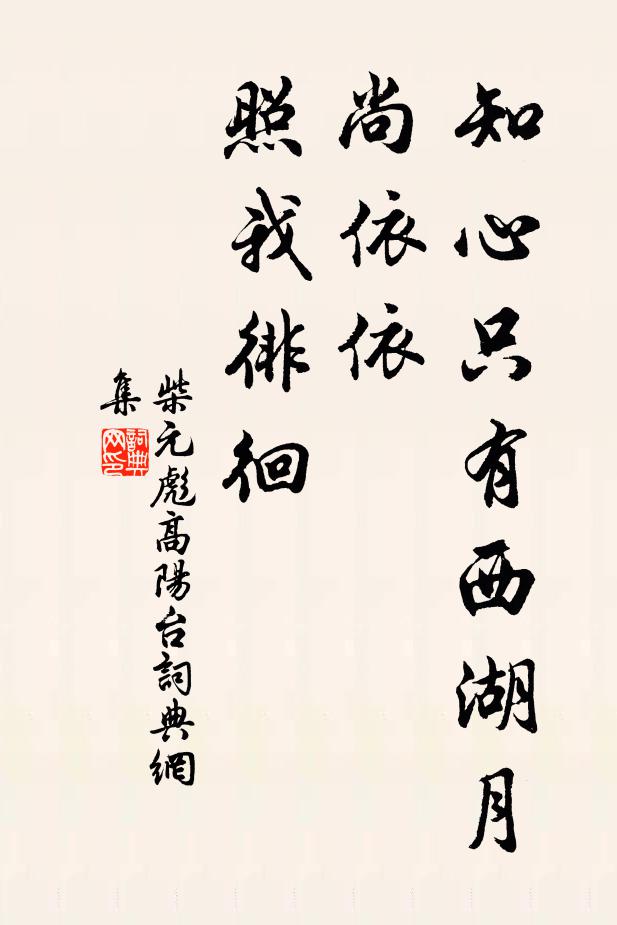 知心只有西湖月
尚依依
照我徘徊
柴元彪高陽台詞典網
集
詞典
网印